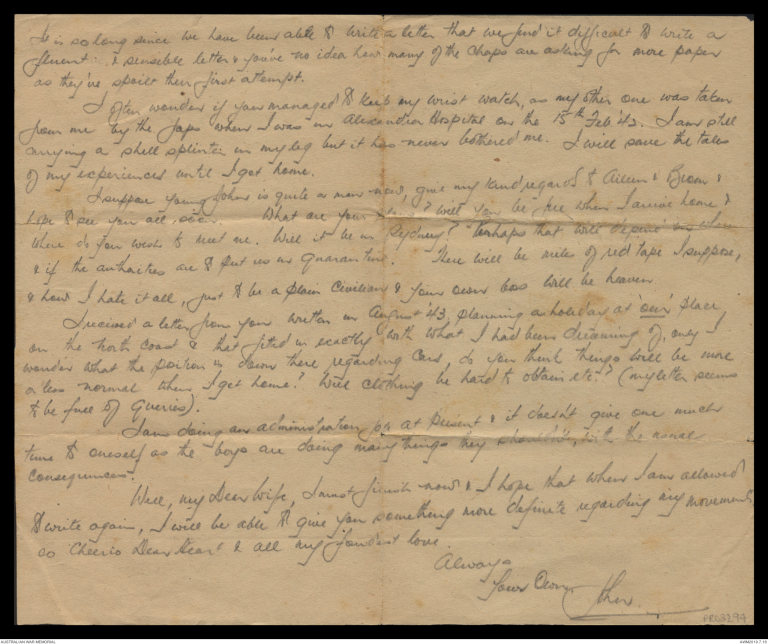 It is so long since we have been able to write a letter that we find it difficult to write a
fluent & sensible letter & you've no idea how many of the chaps are asking for more paper
as they've spoilt their first attempt.
I often wonder if you managed to keep my wrist watch, as my other one was taken
from me by the Japs when I was in Alexandra Hospital on the 15th Feb 43. I am still
carrying a shell splinter in my leg but it has never bothered me. I will save the tales
of my experiences until I get home.
I suppose young John is quite a man now, give my kind regards to Aileen & &
hope to see you all soon. What are your plans? Will you be free when I arrive home &
where do you wish to meet me. Will it be in Sydney? Perhaps that will depend on when
& if the authorities are to put us in Quarantine. There will be miles of red tape I suppose,
& how I hate it all, just to be a plain Civilian & your own boss will be heaven
I received a letter from you written in August 43, planning a holiday at "our" place
on the North Coast & that fitted in exactly with what I had been dreaming of, only I
wonder what the position is down there regarding Cars, do you think things will be more
or less normal when I get home? Will clothing be hard to obtain etc? (my letter seems
to be full of Queries).
I am doing an administration job at present & it doesn't give one much
time to oneself as the boys are doing many things they shouldn't, with the usual
consequences.
Well, my Dear Wife, I must finish now & I hope that when I am allowed
to write again, I will be able to give you something more definite regarding my movements
so Cheerio Dear Heart & all my fondest love.
Always
Your Own
John
PR03294
AUSTRALIAN WAR MEMORIAL